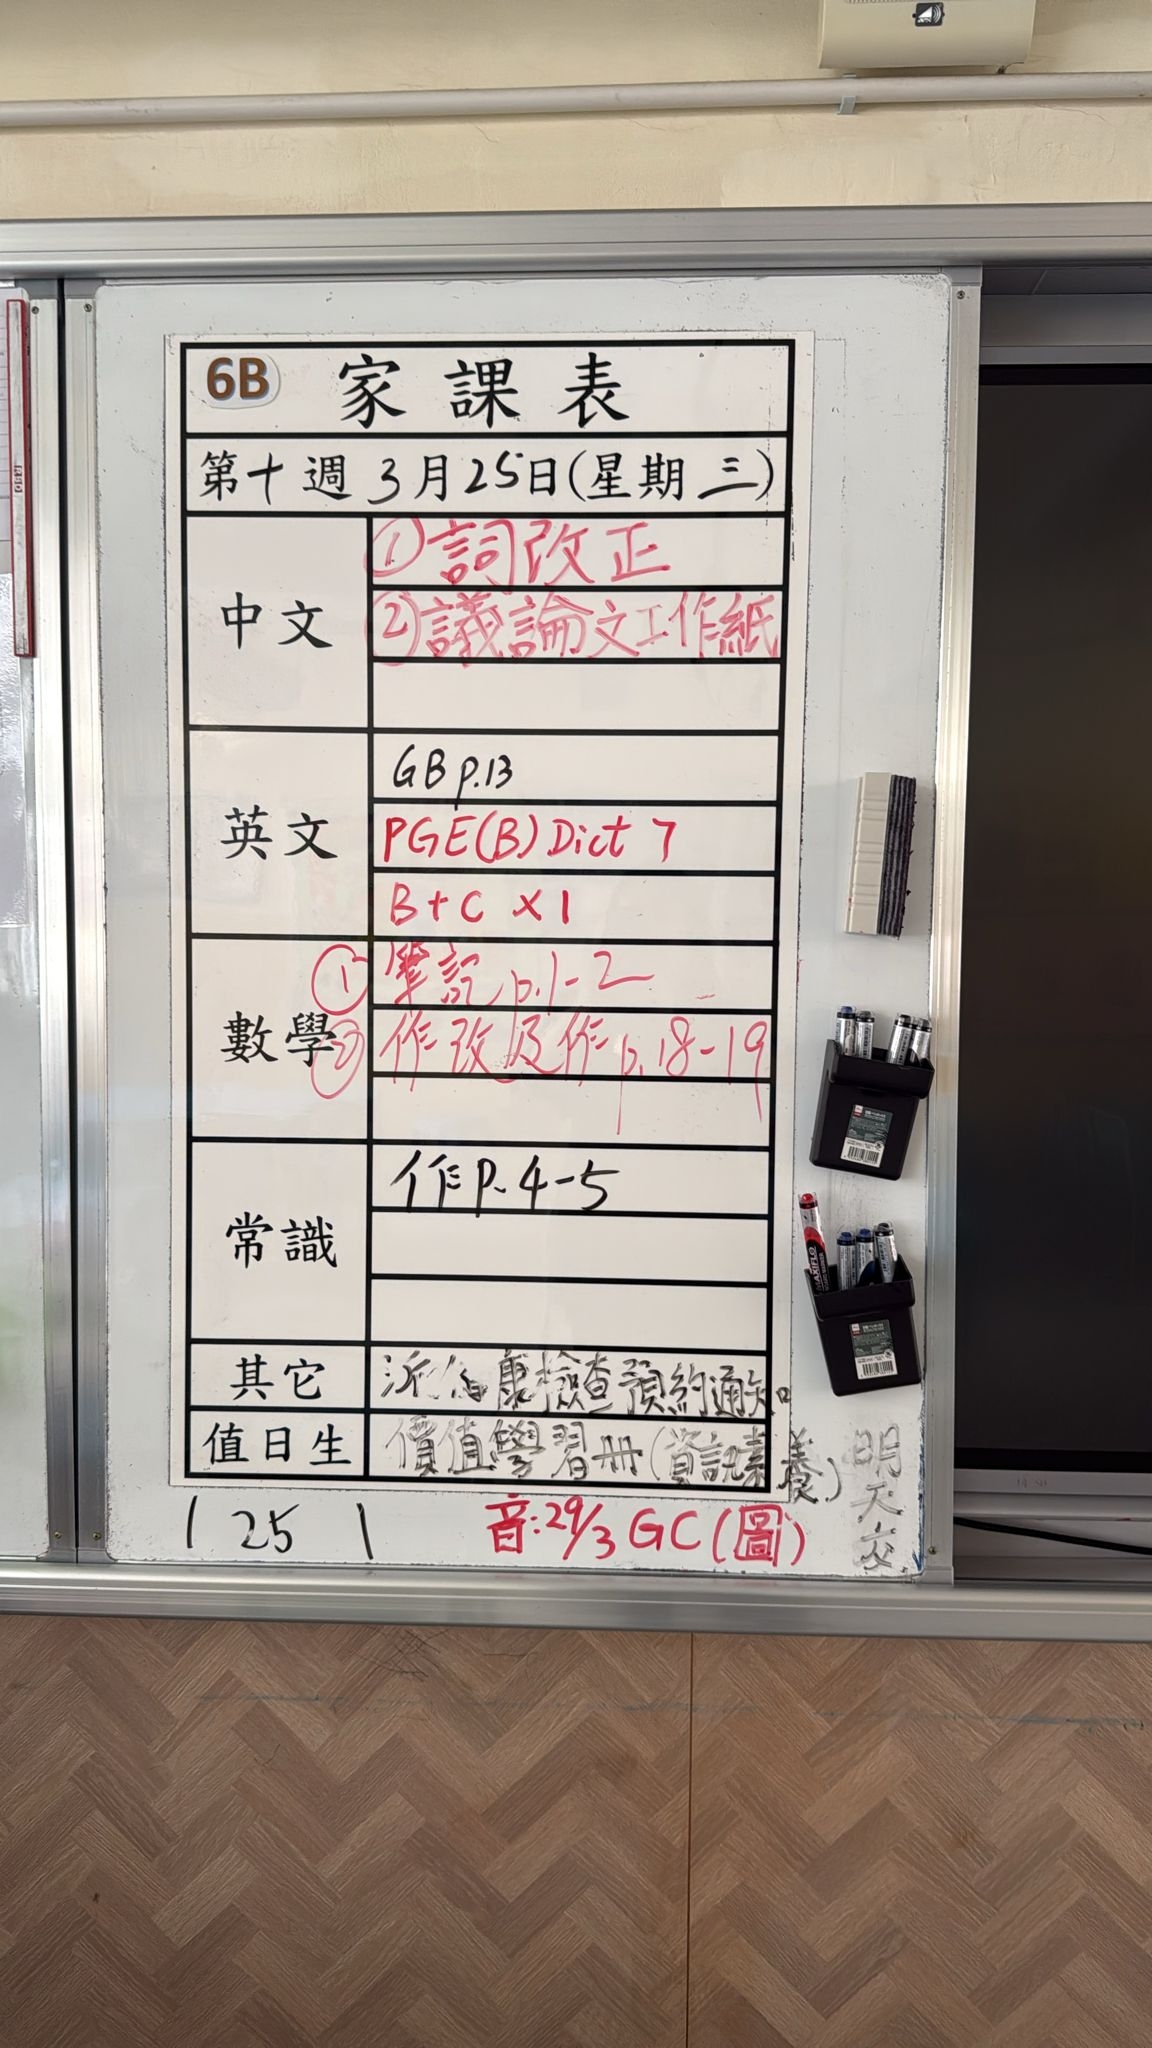 6B 家課表
第十週 3月25日(星期三)
中文
①詞改正
②議論文工作紙
英文
GB p.13
PGE(B) Dict 7
B+C x1
數學
①筆記 p.1-2
②作改及作 p.18-19
常識
作 p.4-5
其它
派 康檢查預約通知
值日生
價值學習冊(資訊素養) 明天交
1 25 1
音:29/3 GC (圖)